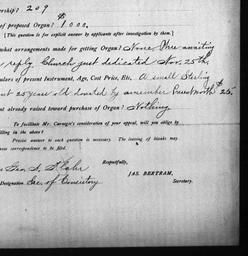 ership? 209
of proposed Organ? $1000.
[This question is for explicit answer by applicants after investigation by them.]
what arrangements made for getting Organ? None. Are awaiting
reply. Church just dedicated Nov. 25th.
ulars of present Instrument, Age, Cost Price, Etc. A small Sterling
25 year old donated by a member Present worth $25.
nt already raised toward purchase of Organ? Nothing
To facilitate Mr. Carnegie's consideration of appeal, will you oblige by
filling in the above?
Precise answer to each question is necessary. The leaving of blanks may
cause correspondence to be filed.
Respectfully,
Geo. S.
JAS. BERTRAM,
Designation Sec. of Consistory
Secretary.